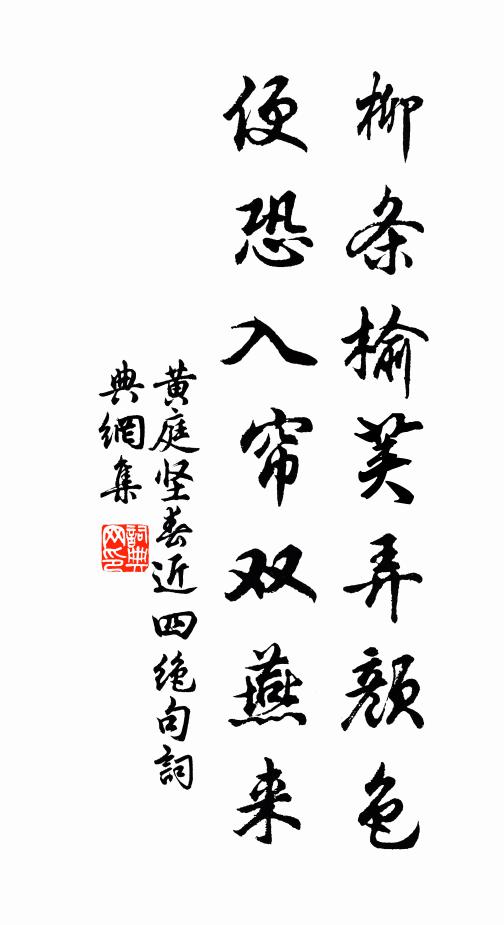 柳条榆荚弄颜色
便恐入帘双燕来
黄庭坚春近四绝句詞
典網集
詞典网印